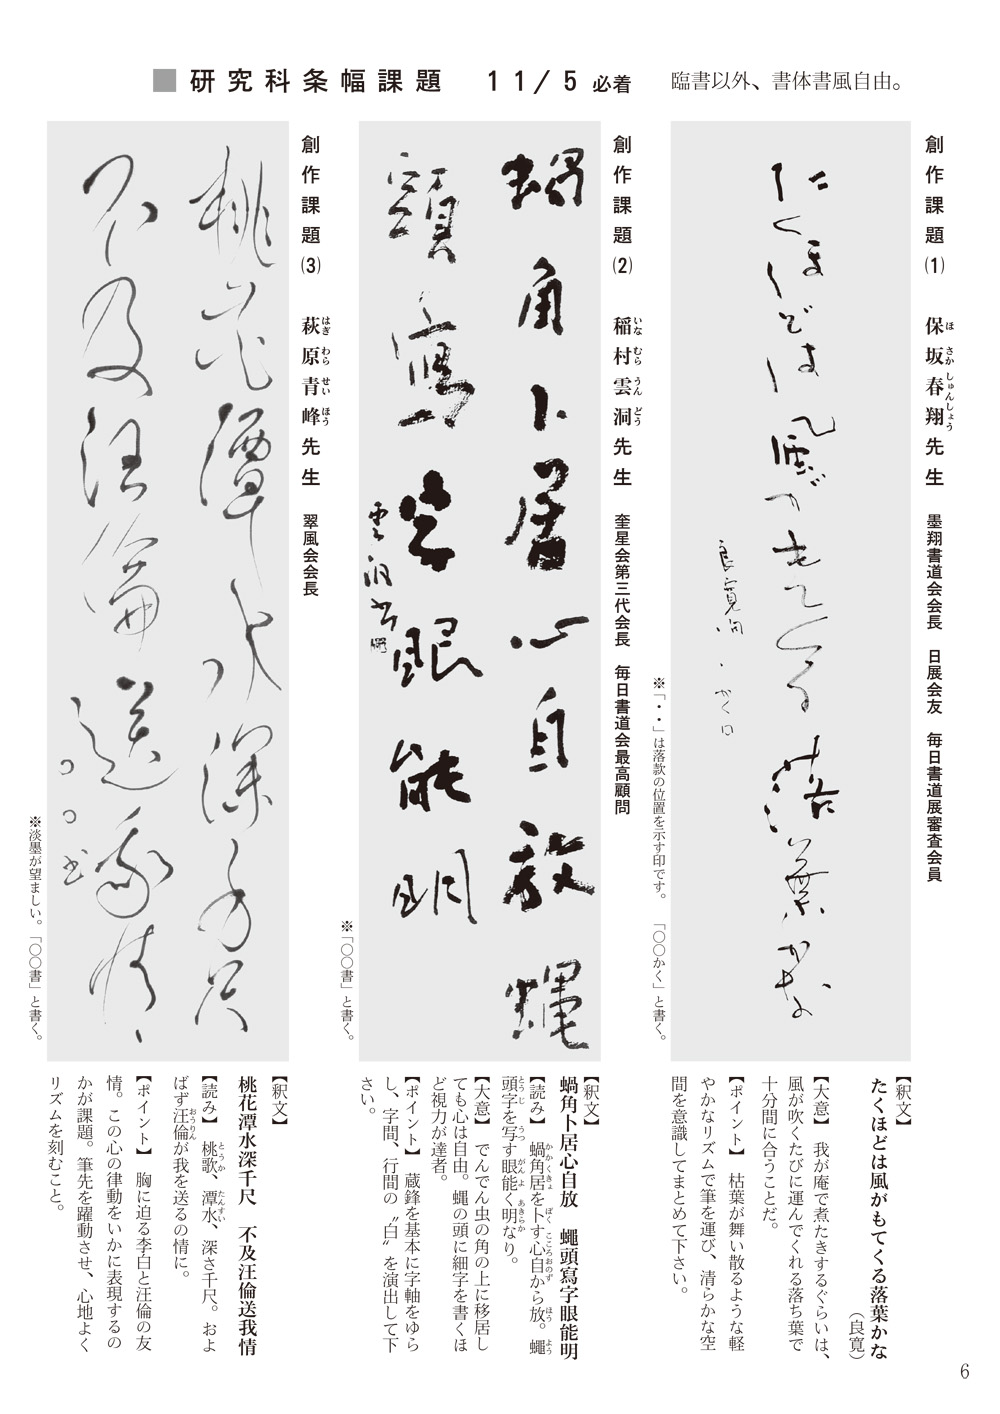 ■研究科条幅課題　11/5必着　臨書以外、書体書風自由。
創作課題(1)　保坂春翔先生　墨翔書道会会長　日展会友　毎日書道展審査会員
ほ　さか　しゅんしょう
たくほどは風がもてくる落葉かな
良寛句・・かく□
※「・・」は落款の位置を示す印です。「〇〇かく」と書く。
【釈文】
たくほどは風がもてくる落葉かな
（良寛）
【大意】　我が庵で煮たきするぐらいは、
風が吹くたびに運んでくれる落ち葉で
十分間に合うことだ。
【ポイント】　枯葉が舞い散るような軽
やかなリズムで筆を運び、清らかな空
間を意識してまとめて下さい。
創作課題(2)　稲村雲洞先生　奎星会第三代会長　毎日書道会最高顧問
いな　むら　うん　どう
蝸角卜居心自放蠅
頭寫字眼能明
雲洞書
※「〇〇書」と書く。
【釈文】
蝸角卜居心自放　蠅頭寫字眼能明
【読み】　蝸角居を卜す心自から放。蠅
かかくきょ　ぼく　こころおのず　ほう　よう
頭字を写す眼能く明なり。
とうじ　うつ　がんよ　あきらか
【大意】　でんでん虫の角の上に移居し
ても心は自由。蝿の頭に細字を書くほ
ど視力が達者。
【ポイント】　蔵鋒を基本に字軸をゆら
し、字間、行間の〝白〟を演出して下
さい。
創作課題(3)　萩原青峰先生　翠風会会長
はぎ　わら　せい　ほう
桃花潭水深千尺
不及汪倫送我情
〇〇書
※淡墨が望ましい。「〇〇書」と書く。
【釈文】
桃花潭水深千尺　不及汪倫送我情
【読み】　桃歌、潭水、深さ千尺。およ
とうか　たんすい
ばず汪倫が我を送るの情に。
おうりん
【ポイント】　胸に迫る李白と汪倫の友
情。この心の律動をいかに表現するの
かが課題。筆先を躍動させ、心地よく
リズムを刻むこと。
6